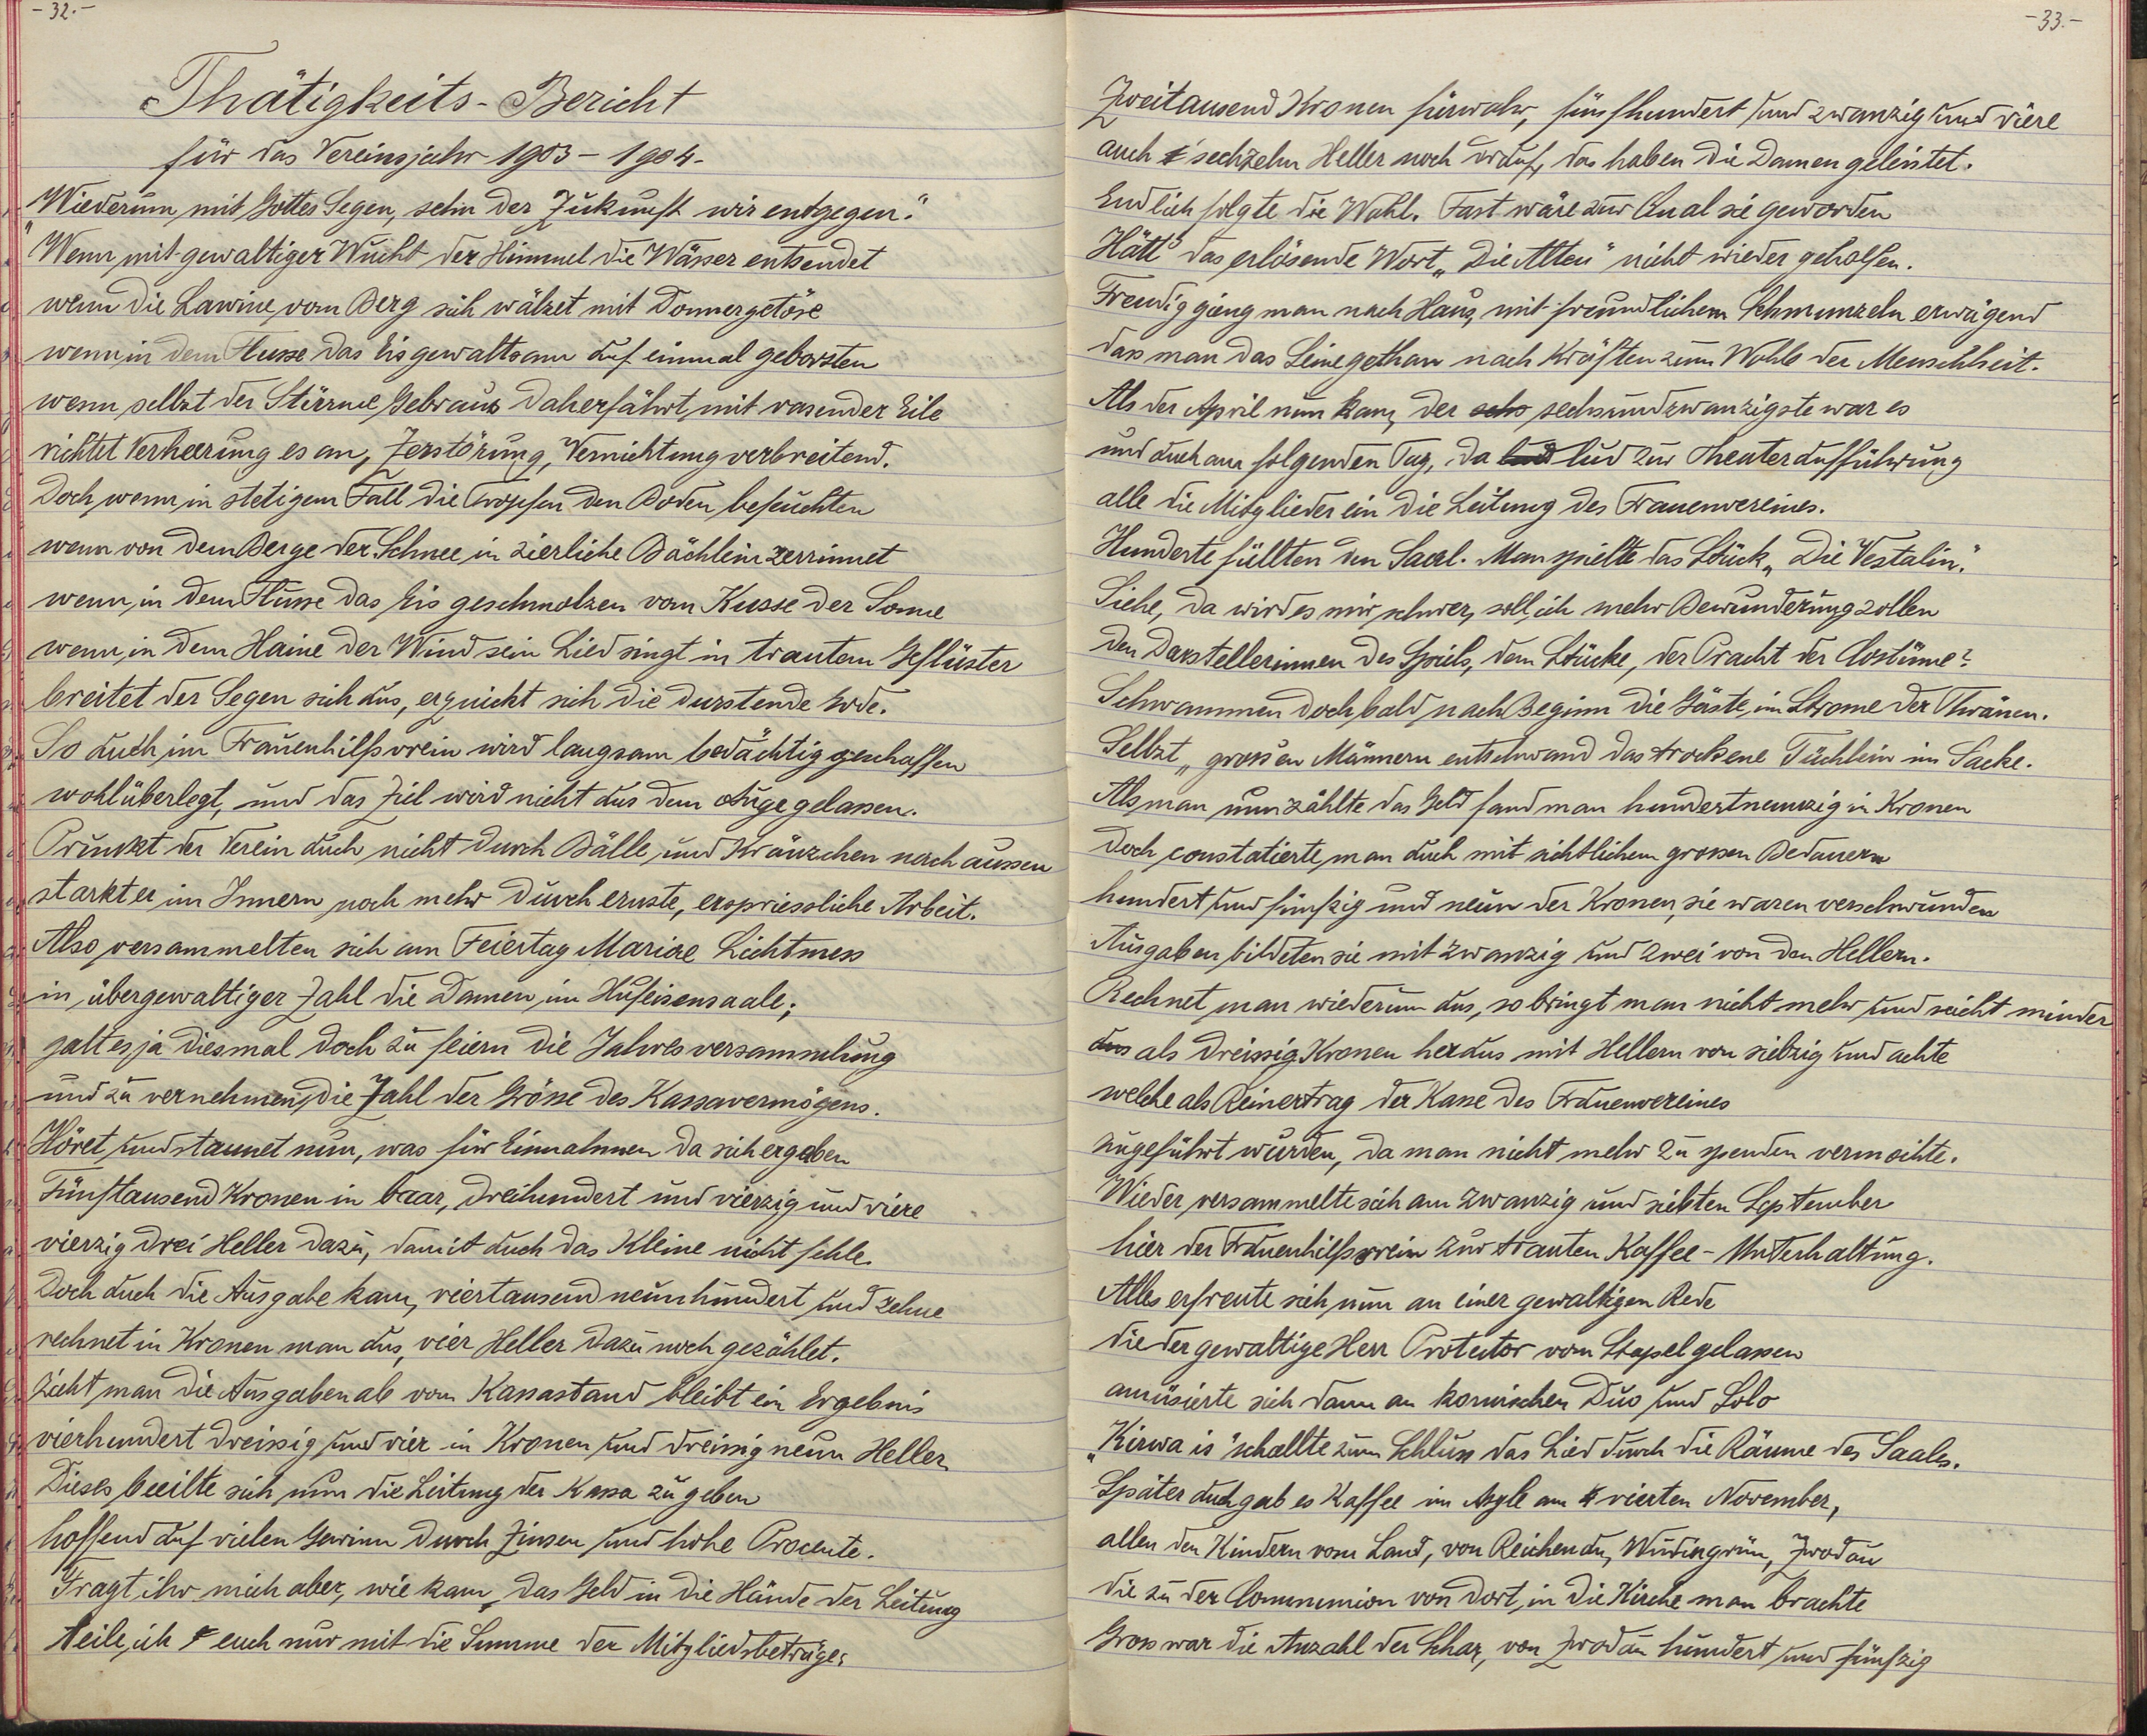 - 32. -
Thätigkeits-Bericht
für das Vereinsjahr 1903 - 1904 -
"Wiederum, mit Gottes Segen, sehn der Zukunft wir entgegen."
"Wenn mit gewaltiger Wucht der Himmel die Wässer entsendet
wenn die Lawine vom Berg sich wälzet mit Donnergetöse
wenn in dem Flusse das Eis gewaltsam auf einmal geborsten
wenn selbst der Stürme Gebraus daherfährt mit rasender Eile
richtet Verheerung es an, Zerstörung, Vernichtung verbreitend.
Doch, wenn in stetigem Fall die Tropfen den Boden befeuchten
wenn von dem Berge der Schnee in zierliche Bächlein zerrinnet
wenn, in dem Flusse das Eis geschmolzen vom Kusse der Sonne
wenn, in dem Haine der Wind sein Lied singt in trautem Geflüster
breitet der Segen sich aus, erquickt sich die durstende Erde.
So auch im Frauenhilfsverein wird langsam bedächtig geschaffen
wohlüberlegt, und das Ziel wird nicht aus dem Auge gelassen.
Prunkt der Verein auch nicht durch Bälle, und Kränzchen nach aussen
starkt er im Innern noch mehr durch ernste, erspriessliche Arbeit.
Also versammelten sich am Feiertag Mariae Lichtmess
in übergewaltiger Zahl die Damen, im Hufeisensaale;
galt es ja diesmal doch zu feiern die Jahresversammlung
und zu vernehmen, die Zahl der Grösse des Kassavermögens.
Höret, und staunet nun, was für Einnahmen da sich ergaben
Fünftausend Kronen in baar, dreihundert und vierzig und viere
vierzig drei Heller dazu, damit auch das Kleine nicht fehle.
Doch auch die Ausgabe kam, viertausend neunhundert und zehne
rechnet in Kronen man aus, vier Heller dazu noch gezählet.
Zieht man die Ausgaben ab vom Kassastand bleibt ein Ergebnis
vierhundert dreissig und vier in Kronen und dreissig neun Heller
Dieses beeilte sich nun die Leitung der Kassa zu geben
hoffend auf vielen Gewinn durch Zinsen und hohe Procente.
Fragt ihr mich aber, wie kam, das Geld in die Hände der Leitung
teile, ich euch nur mit die Summe der Mitgliedsbeträge:
- 33. -
Zweitausend Kronen fürwahr, fünfhundert und zwanzig und viere
auch sechzehn Heller noch drauf, das haben die Damen geleistet.
Endlich folgte die Wahl. Fast wäre zur Qual sie geworden
Hätt' das erlösende Wort "Die Alten" nicht wieder geholfen.
Freudig gieng man nach Haus, mit freundlichem Schmunzeln erwägend
dass man das Seine gethan nach Kräften zum Wohle der Menschheit.
Als der April nun kam, der sechs sechsundzwanzigste war es
und auch am folgenden Tag, da lud lud zur Theateraufführung
alle die Mitglieder ein die Leitung des Frauenvereines.
Hunderte füllten den Saal. Man spielte das Stück "Die Vestalin."
Siehe, da wird es mir schwer, soll ich mehr Bewunderung zollen
den Darstellerinnen des Spiels, dem Stücke, der Pracht der Costüme?
Schwammen doch bald nach Beginn die Gäste, im Strome der Thränen.
Selbst "grossen Männern entschwand das trockene Tüchlein im Sacke.
Als man nun zählte das Geld fand man hundertneunzig in Kronen
doch constatierte man auch mit sichtlichem grossen Bedauern
hundert und fünfzig und neun der Kronen, sie waren verschwunden
Ausgaben bildeten sie mit zwanzig und zwei von den Hellern.
Rechnet man wiederum aus, so bringt man nicht mehr und nicht minder
aus als dreissig Kronen heraus mit Hellern von siebzig und achte
welche als Reinertrag der Kasse des Frauenvereines
zugeführt wurden, da man nicht mehr zu spenden vermochte.
Wieder versammelte sich am zwanzig und siebten September
hier der Frauenhilfsverein zur trauten Kaffee-Unterhaltung.
Alles erfreute sich nun an einer gewaltigen Rede
die der gewaltige Herr Protector vom Stapel gelassen
amüsierte sich dann an komischen Duo und Solo
"Kirwa is" schallte zum Schluss das Lied durch die Räume des Saales.
Später auch gab es Kaffee im Asyle am vierten November,
allen den Kindern vom Land, von Reichenau, Wudingrün, Zwodau
die zu der Communion von dort, in die Kirche man brachte
Gross war die Anzahl der Schar, von Zwodau hundert und fünfzig